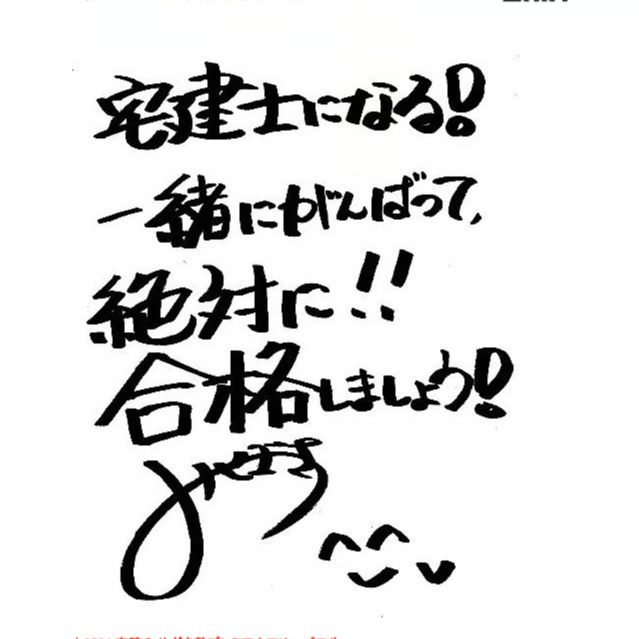 宅建士になる!
一緒にがんばって、
絶対に!!
合格しましょう!